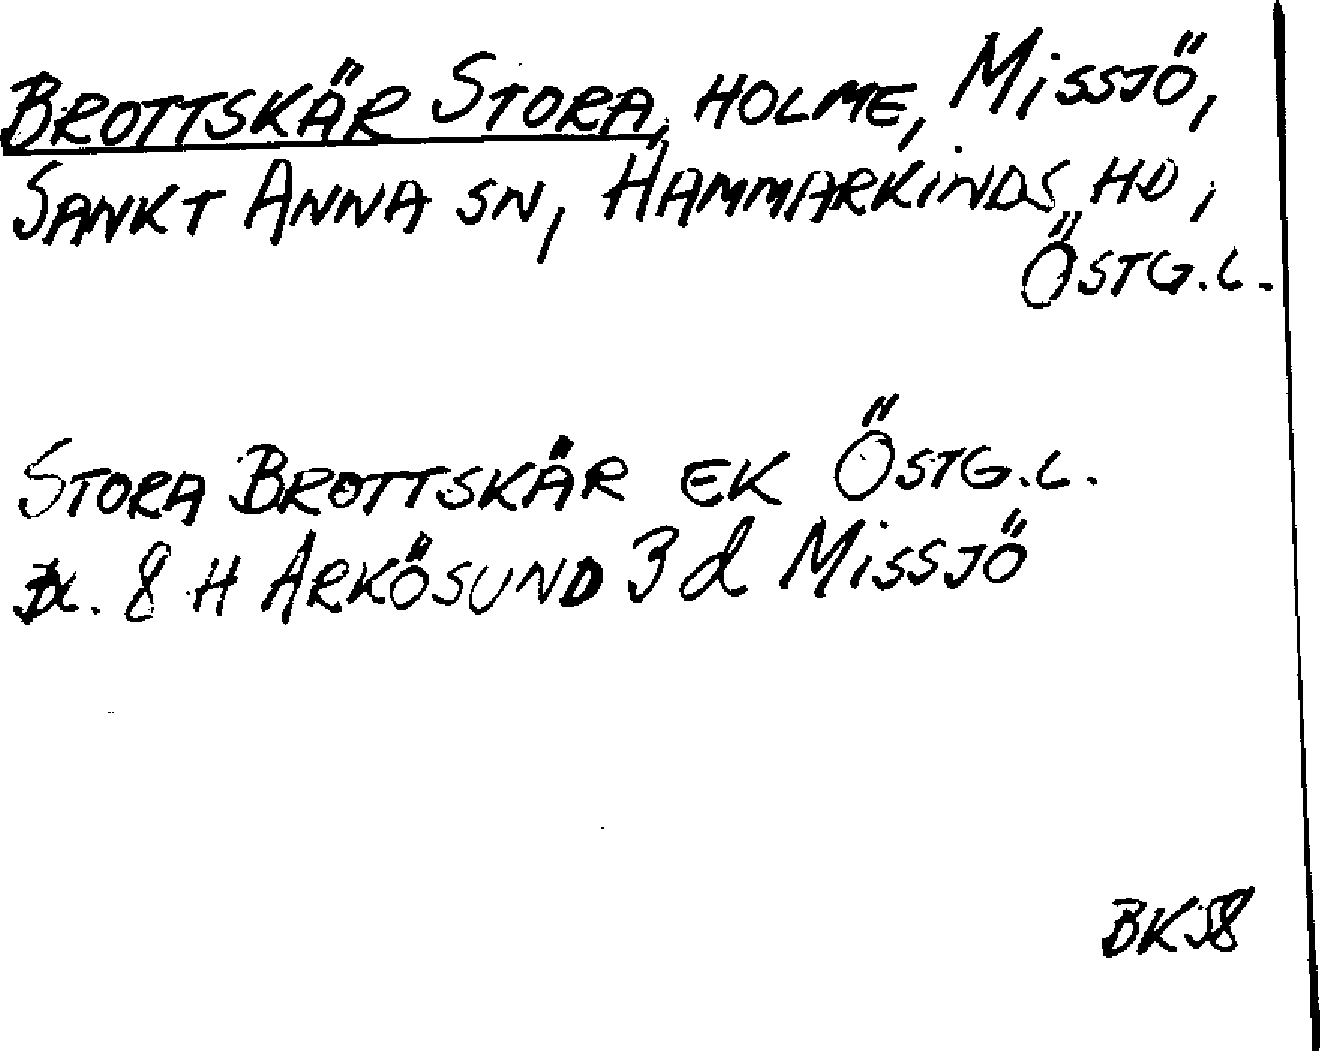 BROTTSKÄR STORA, HOLME, MISSJÖ,
SANKT ANNA SN, HAMMARKINDS HD,
ÖSTG.L.
STORA BROTTSKÄR EK ÖSTG.L.
Bl. 8 H ARKÖSUND 3 d MISSJÖ
BK58